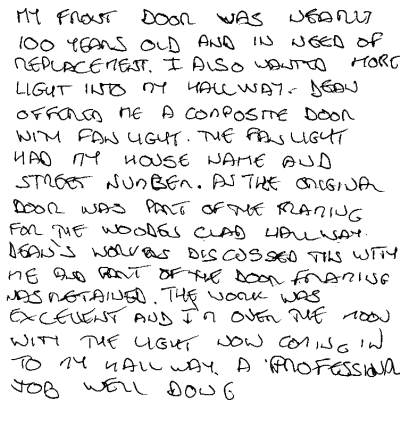 MY FRONT DOOR WAS NEARLY
100 YEARS OLD AND IN NEED OF
REPLACEMENT. I ALSO WANTED MORE
LIGHT INTO MY HALLWAY. DEAN
OFFERED ME A COMPOSITE DOOR
WITH FAN LIGHT. THE FAN LIGHT
HAD MY HOUSE NAME AND
STREET NUMBER. AS THE ORIGINAL
DOOR WAS PART OF THE FRAMING
FOR THE WOODEN CLAD HALLWAY.
DEAN'S WORKERS DISCUSSED THIS WITH
ME AND PART OF THE DOOR FRAMING
WAS RETAINED. THE WORK WAS
EXCELLENT AND I'M OVER THE MOON
WITH THE LIGHT NOW COMING IN
TO MY HALLWAY. A PROFESSIONAL
JOB WELL DONE